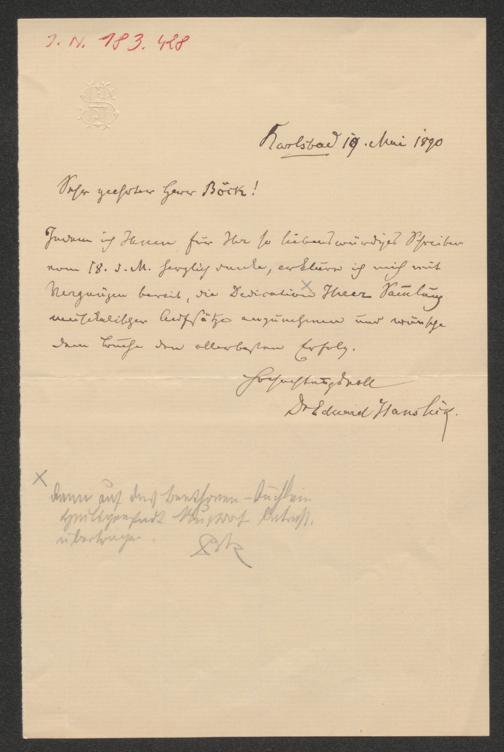 I. N. 183.428
Karlsbad 19. Mai 1890
Sehr geehrter Herr Böck!
Indem ich Ihnen für Ihr so liebenswürdiges Schreiben
vom 18. d. M. herzlich danke, erkläre ich mich mit
Vergnügen bereit, die Dedication × Ihrer Samlung
musikalischer Aufsätze anzunehmen und wünsche
dem Buche den allerbesten Erfolg.
Hochachtungsvoll
Dr Eduard Hanslick.
× Dann auf das Beethoven-Büchlein
Heiligenstadt Nussdorf
übertragen.